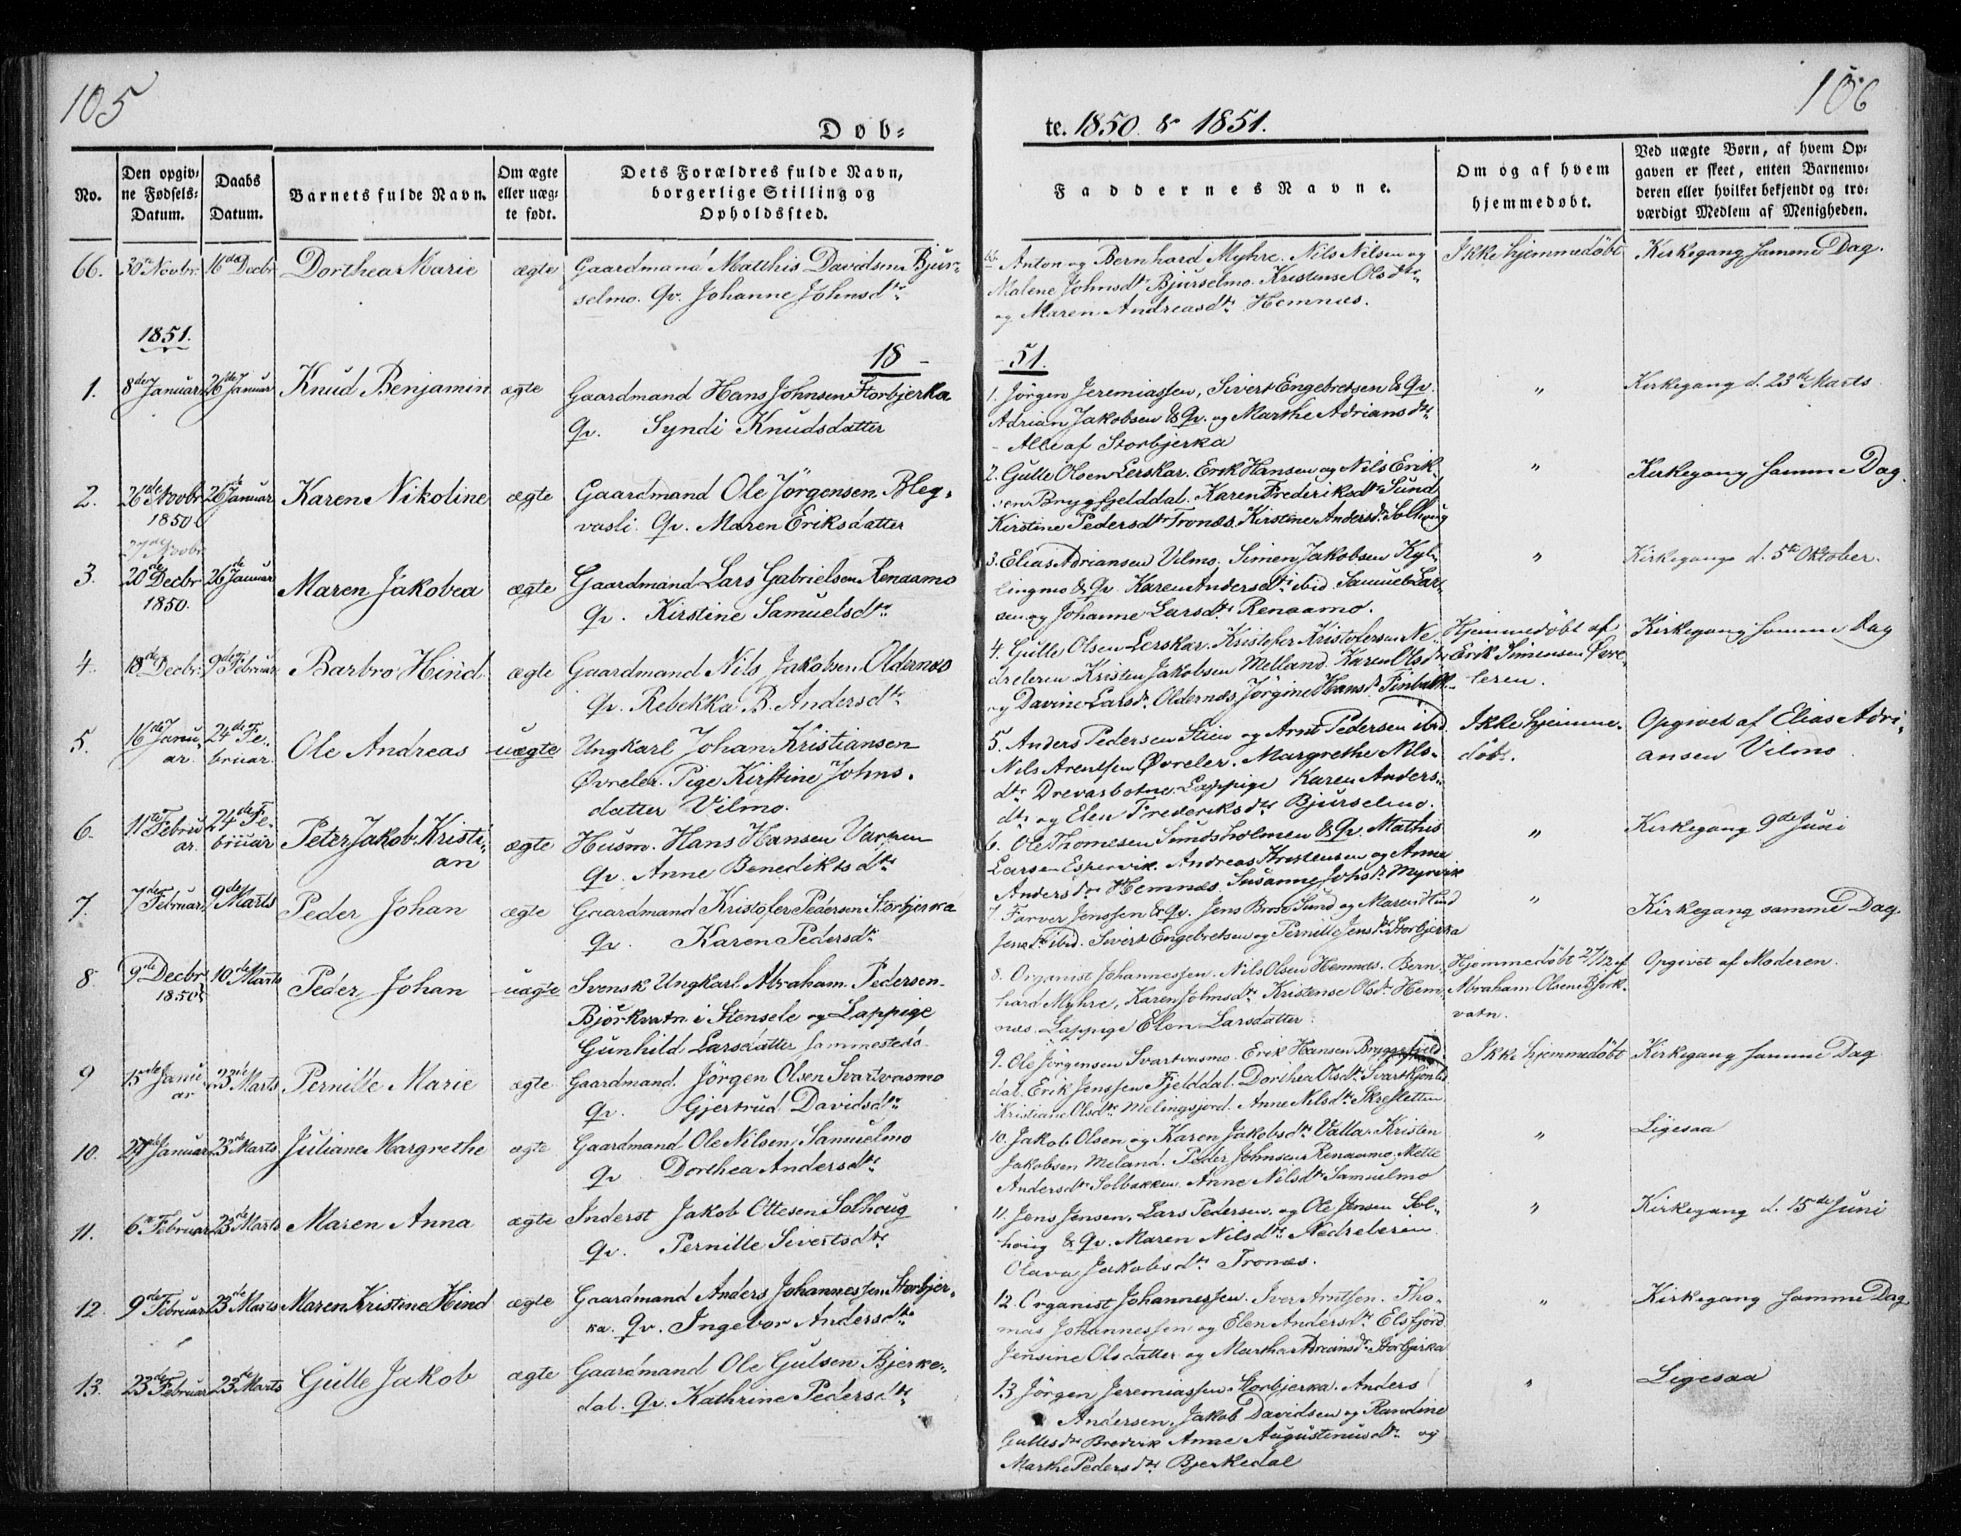 105
106
Døb-
te. 1850. & 1851.
No.
Den opgiv-
ne Fødsels-
Datum.
Daabs
Datum.
Barnets fulde Navn.
Om ægte
eller uæg-
te født.
Dets Forældres fulde Navn,
borgerlige Stilling og
Opholdssted.
Faddernes Navne.
Om og af hvem
hjemmedøbt.
Ved uægte Børn, af hvem Op-
gaven er skeet, enten Barnemo-
deren eller hvilket bekjendt og tro-
værdigt Medlem af Menigheden.
66. 30te Novbr. 16de Decbr Dorthea Marie ægte
Gaardmand Matthis Davidsen Bjur-
selmo. Qv. Johanne Johnsdtr
66. Anton og Bernhard Myhre. Nils Nilsen og
Malene Johnsdtr Bjurselmo. Kristense Olsdtr
og Maren Andreasdtr Hemnes.
Ikke hjemmedøbt
Kirkegang samme Dag.
1851.
18 -
51.
1. 8de Januar 26de Januar Knud Benjamin ægte
Gaardmand Hans Johnsen Storbjerka
Qv. Syndi Knudsdatter
1. Jörgen Jeremiassen, Sivert Engebretsen & Qv.
Adrian Jakobsen & Qv. og Marthe Adriansdtr
- Alle af Storbjerka
"
Kirkegang d. 23de Marts
2. 26de Novbr 1850 26de Januar Karen Nikoline ægte
Gaardmand Ole Jörgensen Bleg-
vasli. Qv. Maren Eriksdatter
2. Gulle Olsen Lerskar. Erik Hansen og Nils Erik-
sen Brygfjelddal. Karen Frederiksdtr Sund
Kirstine Pedersdtr Tronæs. Kirstine Andersdtr Solhoug
"
Kirkegang samme Dag.
27de Novbr
3. 20de Decbr 1850. 26de Januar Maren Jakobea ægte
Gaardmand Lars Gabrielsen Renaamo
Qv. Kirstine Samuelsdtr
3. Elias Adriansen Vilmo, Simon Jakobsen Kyl-
lingmo & Qv. Karen Andersdtr ibid. Samuel Lar-
sen og Johanne Larsdtr Renaamo.
"
Kirkegang d. 5te Oktober.
4. 18de Decbr. 9de Februar Barbro Hind ægte
Gaardmand Nils Jakobsen Oldernæs
Qv. Rebekka B. Andersdtr
4. Gulle Olsen Lerskar. Kristofer Kristofersen Ne-
dreleren Kristen Jakobsen Melland. Karen Olsdtr
og Davine Larsdtr Oldernæs, Jörgine Hansdtr
Hjemmedöbt af
Erik Simensen Övre-
leren.
Kirkegang samme Dag
5. 16de Janu-
ar. 24de Fe-
bruar. Ole Andreas uægte
Ungkarl Johan Kristiansen
Övreler. Pige Kirstine Johns-
datter Vilmo.
5. Anders Pedersen Stien og Arnt Pedersen ibid.
Nils Arentsen Övreler. Margrethe Nils-
dtr Drevasbotne. Lappige Karen Anders-
dtr og Elen Frederiksdtr Bjurselmo.
Ikke hjemme-
döbt.
Opgivet af Elias Adri-
ansen Vilmo
6. 11te Febru-
ar. 24de Fe-
bruar Peter Jakob Kristi-
an ægte
Husm. Hans Hansen Varpen
Qv. Anne Benediktsdtr
6. Ole Thomesen Sundsholmen & Qv. Mathis
Larsen Espervik. Andreas Kristensen og Anne
Andersdtr Hemnæs. Susanne Johsdtr Myrvik
"
Kirkegang 9de Juni
7. 7de Februar 9de Marts Peder Johan ægte
Gaardmand Kristofer Pedersen Storbjerka
Qv. Karen Pedersdtr
7. Farver Jenssen & Qv. Jens Brose Sund og Maren Hind
Jensdtr ibid. Sivert Engebretsen og Pernille Jensdtr Storbjerka
"
Kirkegang samme Dag.
8. 9de Decbr 1850 10de Marts Peder Johan uægte
Svensk Ungkarl Abraham Pedersen
Björkvatn i Stensele og Lappige
Gunhild Larsdatter sammesteds
8. Organist Johannessen. Nils Olsen Hemnæs. Bern-
hard Myhre, Karen Johnsdtr Kristense Olsdtr Hem-
næs. Lappige Elen Larsdatter.
Hjemmedöbt 27/12 af
Abraham Olsen Bjerk-
vatn.
Opgivet af Moderen.
9 15de Janu-
ar 23de Marts Pernille Marie ægte
Gaardmand Jörgen Olsen Svartvasmo
Qv. Gjertrud Davidsdtr
9. Ole Jörgensen Svartvasmo. Erik Hansen Bryggfjeld-
dal. Erik Jenssen Fjelddal. Dorthea Olsdtr
Kristiane Olsdtr Melingsjord. Anne Nilsdtr
Ikke hjemmedöbt
Kirkegang samme Dag
10. 29de Januar 23de Marts Juliane Margrethe ægte
Gaardmand Ole Nilsen Samuelmo
Qv Dorthea Andersdtr
10. Jakob Olsen og Karen Jakobsdtr Valla. Kristen
Jakobsen Meland. Peder Johnsen Renaamo. Mette
Andersdtr Solbakken. Anne Nilsdtr Samuelmo
"
Ligesaa
11. 6te Februar 23de Marts Maren Anna ægte
Inderst Jakob Ottesen Solhoug
Qv. Pernille Sivertsdtr
11. Jens Jensen, Lars Pedersen, og Ole Jensen Sol-
houg & Qv. Maren Nilsdtr Nedreleren.
Olava Jakobsdtr Tronæs.
"
Kirkegang d. 15de Juni
12. 9de Februar 23de Marts Maren Kristine Hind ægte
Gaardmand Anders Johannessen Storbjer-
ka. Qv. Ingebor Andersdtr
12. Organist Johannessen. Iver Arntsen. Tho-
mas Johannessen og Elen Andersdtr Elsfjord
Jensine Olsdatter og Martha Adriansdtr Storbjerka
"
Kirkegang samme Dag
13. 23de Februar 23de Marts Gulle Jakob ægte
Gaardmand Ole Gulsen Bjerke-
dal. Qv. Kathrine Pedersdtr
13 Jörgen Jeremiassen Storbjerka. Anders
Andersen, Jakob Davidsen og Randine
Gullesdtr Bredvik Anne Augustinusdtr og
Marthe Pedersdtr Bjerkedal
"
Ligesaa